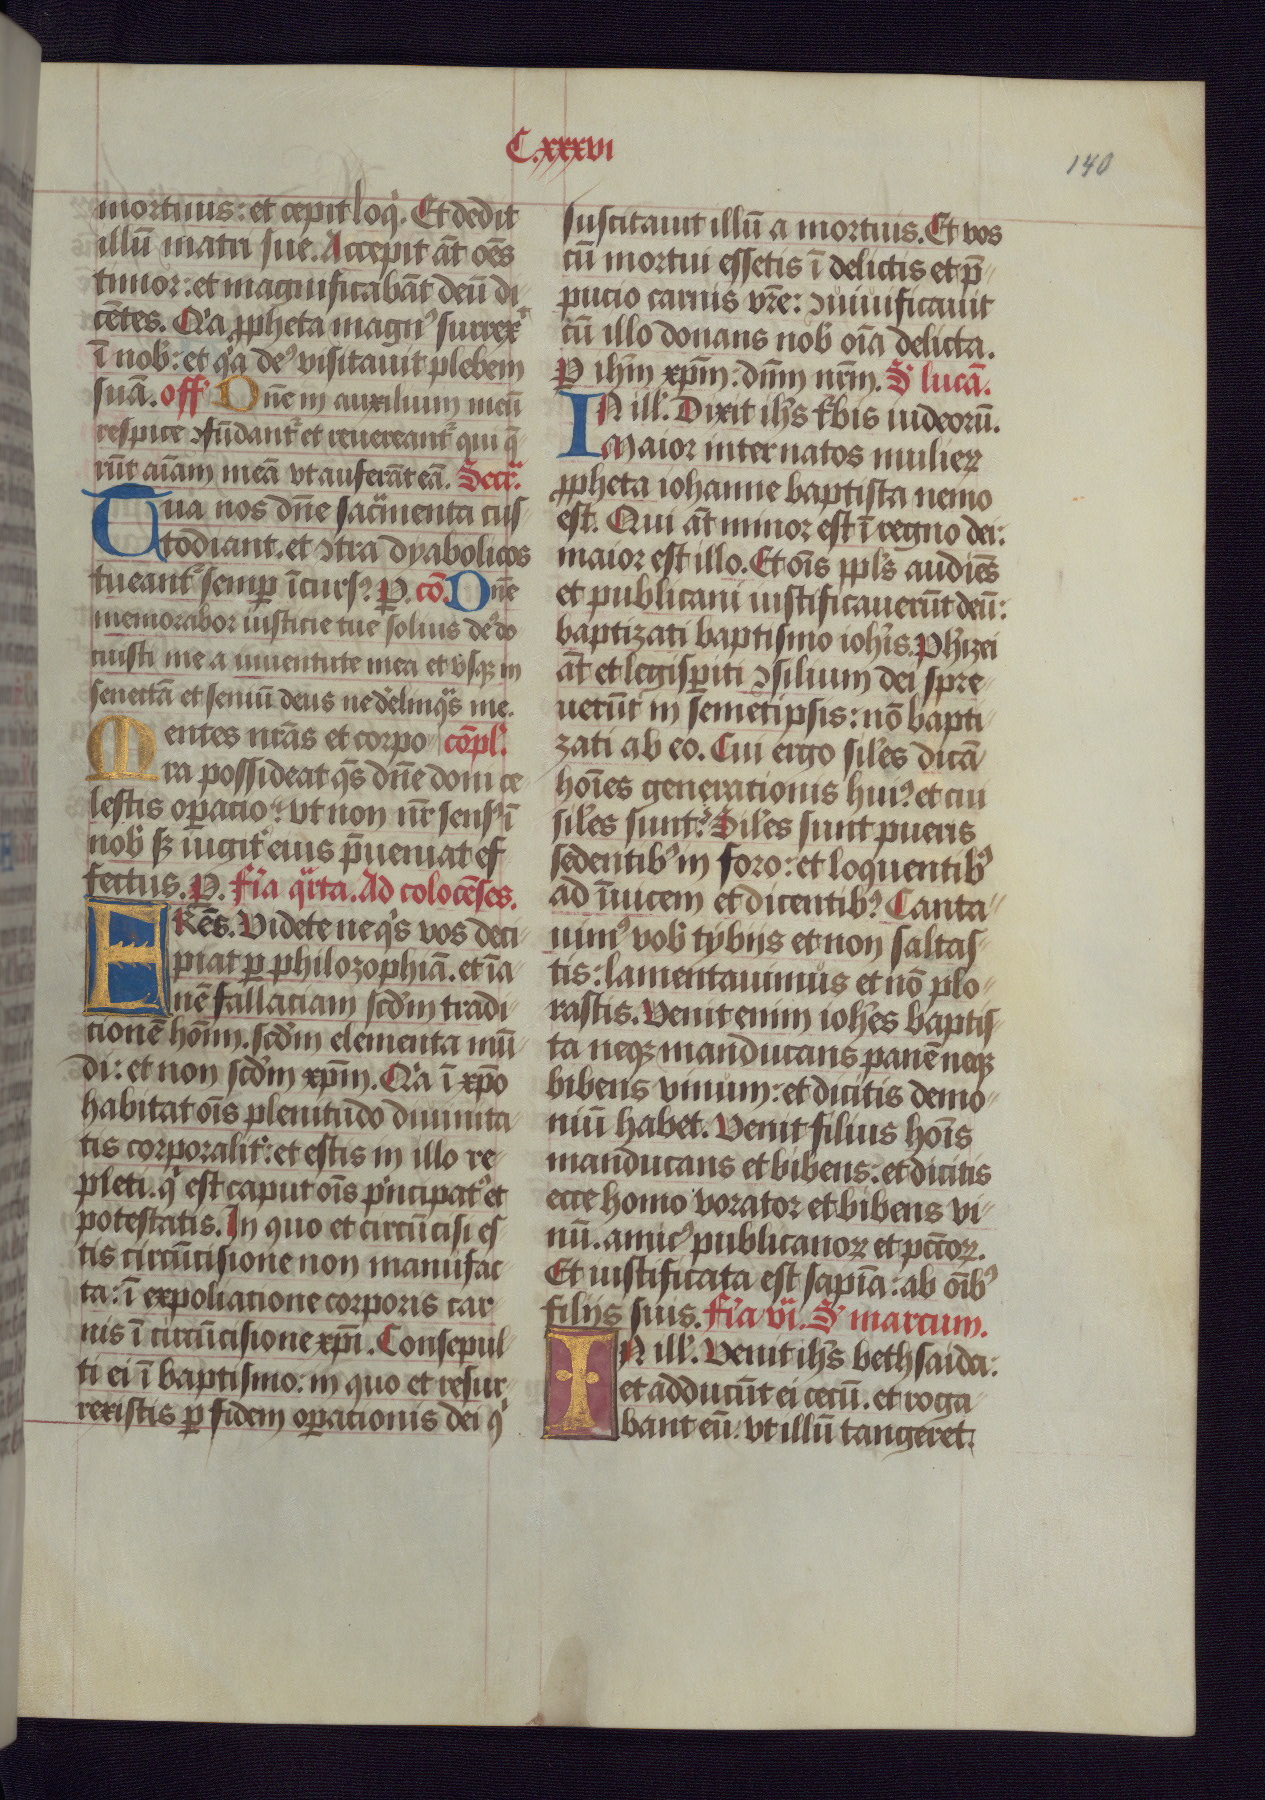 C.xxxvi
140
mortuus: et cepit loqͥ. Et dedit
illū matri sue. Accepit āt oēs
timor: et magnificabāt deū di
cētes. Qͥa ꝓpheta magnꝰ surrex̄
ī nob: et qͥa deꝰ visitavit plebem
suā. off Dn̄e in auxilium meū
respice ꝯfūdant᷑ et revereant᷑ qui q̄
rūt aīam meā vt auferāt eā. Secr̄.
Tua nos dn̄e sacͣmenta cus
todiant. et ꝯtra dyabolicos
tueant᷑ semꝑ īcursꝰ. P. cō. Dn̄e
memorabor iusticie tue solius deꝰ do
cuisti me a iuventute mea et vsqꝫ in
senectā et seniū deus ne delinqͣs me.
Mentes nr̄as et corpo cōpl'.
ra possideat qͣs dn̄e doni ce
lestis oꝑacio: vt non nr̄ sensꝰ ī
nob sꝫ iugit᷑ eius p̄veniat ef
fectus. P. Fīa qͣrta. Ad colocēses.
FRēs. Videte ne qͥs vos deci
piat ꝑ philozophiā. et īa
nē fallaciam scd̄m tradi
tionē hoīm. scd̄m elementa mū
di: et non scd̄m xp̄m. Qͥa ī xp̄o
habitat oīs plenitudo divinita
tis corporalit᷑: et estis in illo re
pleti. qͥ est caput oīs pͥncipatꝰ et
potestatis. In quo et circūcisi es
tis circūcisione non manufac
ta: ī expoliatione corporis car
nis ī circūcisione xp̄i. Consepul
ti ei ī baptismo: in quo et resur
rexistis ꝑ fidem oꝑacionis dei qͥ
suscitavit illū a mortuis. Et vos
cū mortui essetis ī delictis et p̄
pucio carnis vr̄e: ꝯvivificavit
cū illo donans nob oīa delicta.
P ih̄m xp̄m: dn̄m nr̄m. S lucā.
IN ill'. Dixit ih̄s t᷑bis iudeorū.
Maior inter natos mulieꝝ
ꝓpheta iohanne baptista nemo
est. Qui āt minor est ī regno dei:
maior est illo. Et oīs ppl's audiēs
et publicani iustificaverūt deū:
baptizati baptismo ioh̄is. Ph̄izei
āt et legisꝑiti ꝯsilium dei spre
verūt in semetipsis: nō bapti
zati ab eo. Cui ergo sil'es dicā
hoīes generationis huiꝰ: et cui
sil'es sunt? Sil'es sunt pueris
sedentibꝰ in foro: et loquentibꝰ
ad īvicem et dicentibꝰ. Canta
vimꝰ vob tybiis et non saltas
tis: lamentavimus et nō plo
rastis. Venit enim ioh̄es baptis
ta neqꝫ manducans panē neqꝫ
bibens vinum: et dicitis demo
niū habet. Venit filius hoīs
manducans et bibens: et dicitis
ecce homo vorator et bibens vi
nū. amicꝰ publicanoꝝ et pctōꝝ.
Et iustificata est sapīa: ab oībꝰ
filijs suis. Fīa vi. S marcum.
IN ill'. Venit ih̄s bethsaida:
et adducūt ei cecū. et roga
bant eū. vt illū tangeret.